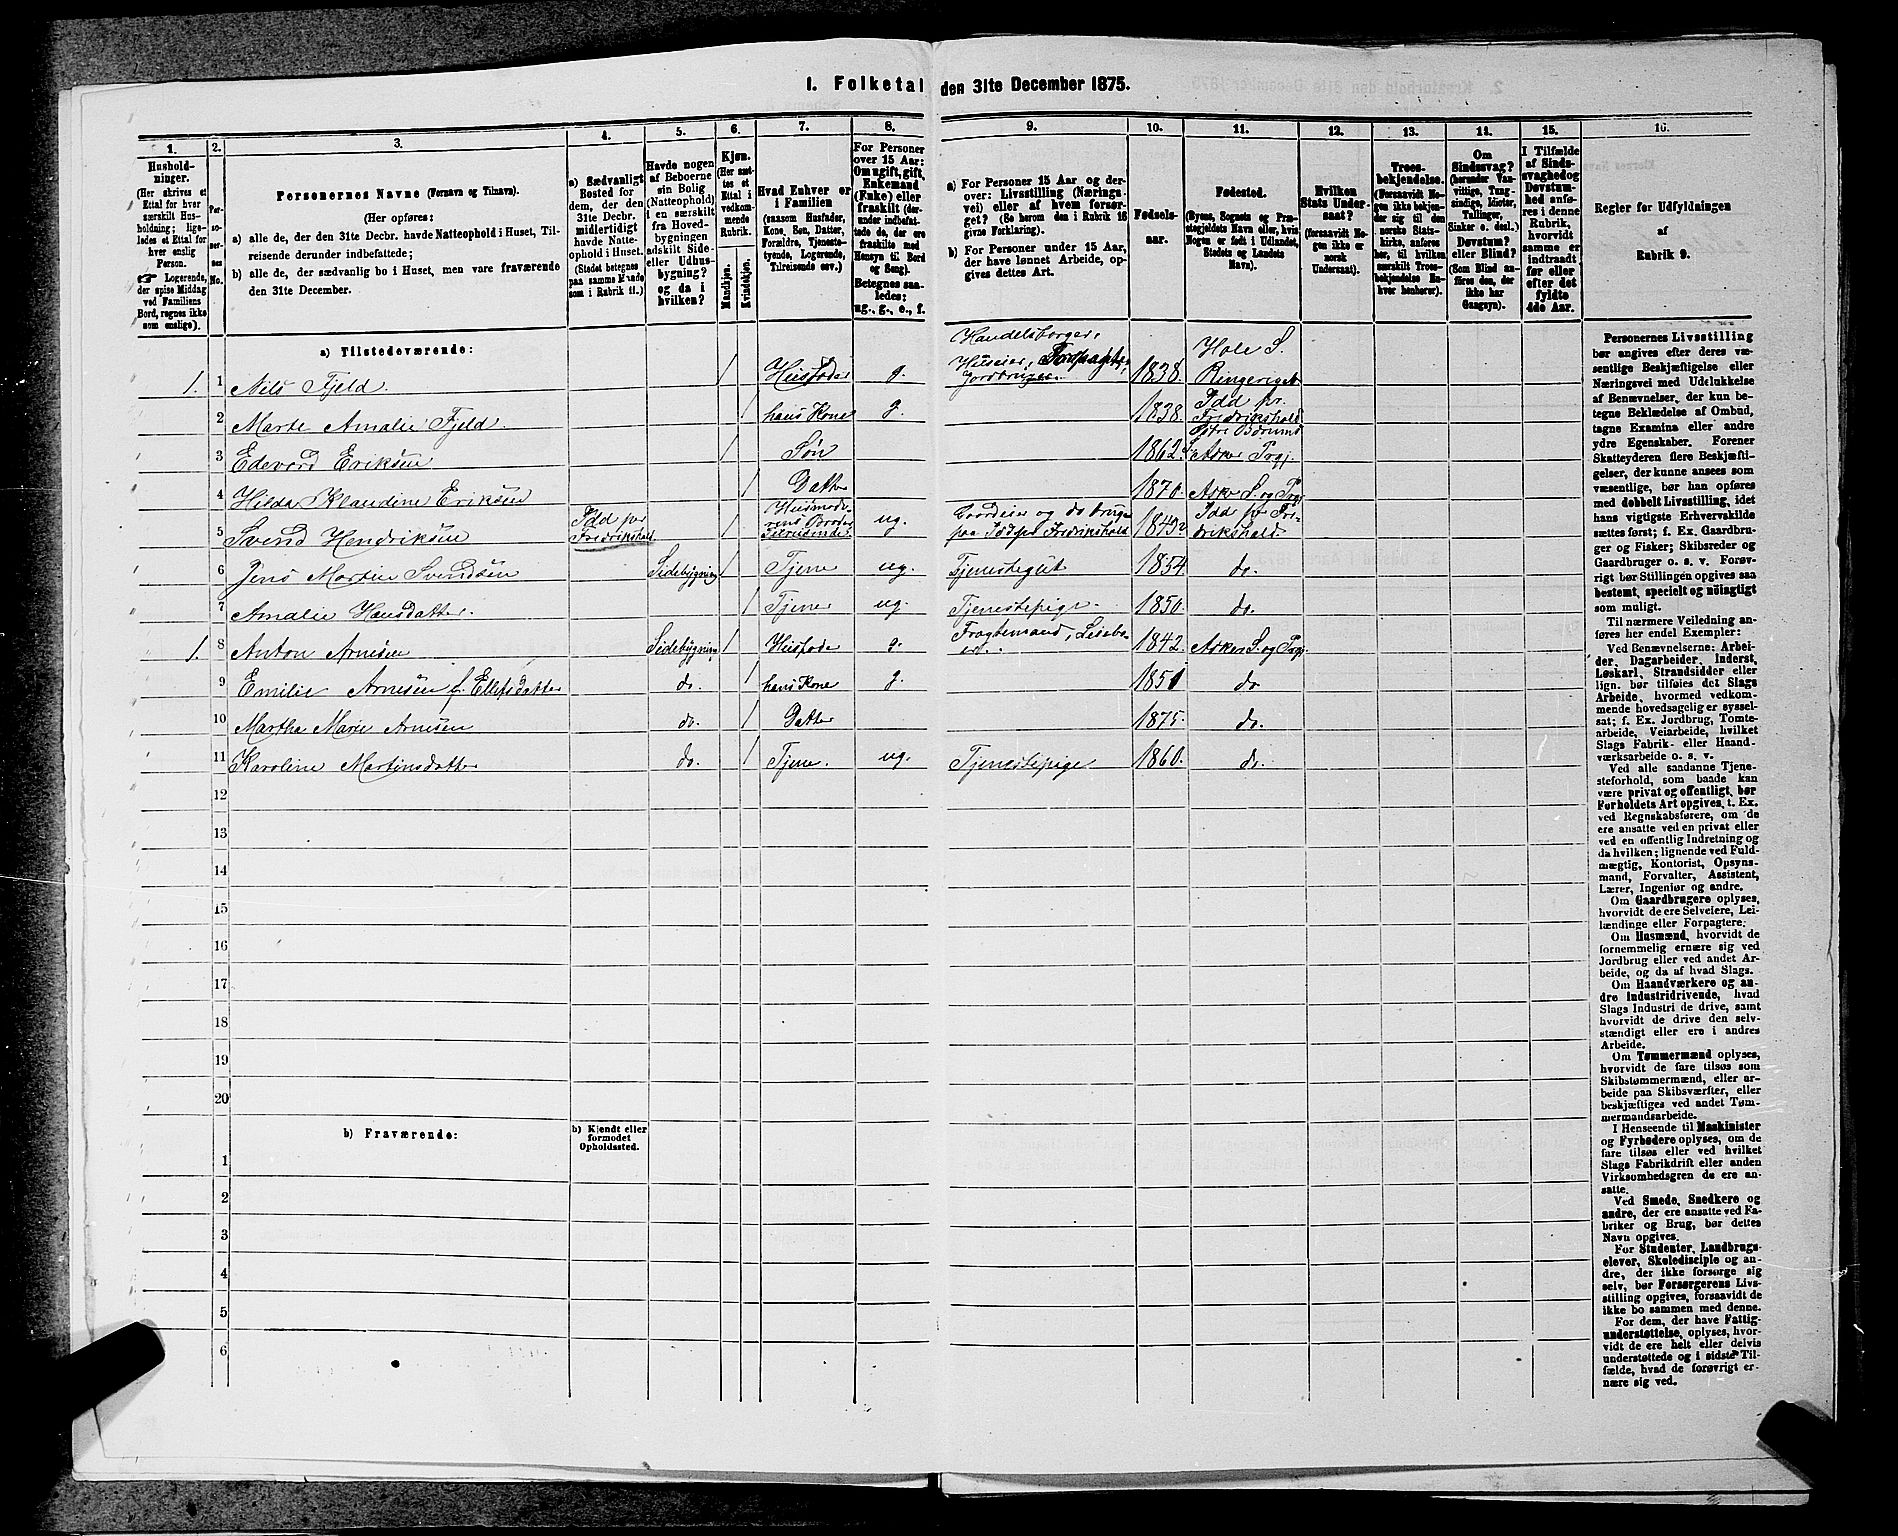 1. Folketal den 31te December 1875.
1. 2. 3. 4. 5. 6. 7. 8. 9. 10. 11. 12. 13. 14. 15. 16.
Hushold-
ninger.
(Her skrives et
Ettal for hver
særskilt Hus-
holdning; lige-
ledes et Ettal for
hver enslig
Person.
☛ Logerende,
der spise Middag
ved Familiens
Bord, regnes ikke
som enslige).
Per-
so-
ner-
nes
No.
Personernes Navne (Fornavn og Tilnavn).
(Her opføres:
a) alle de, der den 31te Decbr. havde Natteophold i Huset, Til-
reisende derunder indbefattede;
b) alle de, der sædvanlig bo i Huset, men vare fraværende
den 31te December.
a) Sædvanligt
Bosted for
dem, der den
31te Decbr.
midlertidigt
havde Natte-
ophold i Huset.
(Stedet betegnes
paa samme Maade
som i Rubrik 11.)
Havde nogen
af Beboerne
sin Bolig
(Natteophold)
i en særskilt
fra Hoved-
bygningen
adskilt Side-
eller Udhus-
bygning?
og da i
hvilken?
Kjøn.
(Her sæt-
tes et
Ettal i
vedkom-
mende
Rubrik.
Mandkjøn.
Kvindekjøn.
Hvad Enhver er
i Familien
(saasom Husfader,
Kone, Søn, Datter,
Forældre, Tjeneste-
tyende, Logerende,
Tilreisende osv.)
For Personer
over 15 Aar:
Om ugift, gift,
Enkemand
(Enke) eller
fraskilt (der-
under indbefat-
tede de, der ere
fraskilte med
Hensyn til Bord
og Seng).
Betegnes saa-
ledes:
ug., g., e., f.
a) For Personer 15 Aar og der-
over: Livsstilling (Nærings-
vei) eller af hvem forsør-
get? (Se herom den i Rubrik 16
givne Forklaring).
b) For Personer under 15 Aar,
der have lønnet Arbeide, op-
gives dettes Art.
Fødsels-
aar.
Fødested.
(Byens, Sognets og Præ-
stegjeldets Navn eller, hvis
Nogen er født i Udlandet,
Stedets og Landets
Navn).
Hvilken
Stats Under-
saat?
(forsaavidt No-
gen ikke er
norsk
Undersaat).
Troes-
bekjendelse.
(Forsaavidt No-
gen ikke bekjen-
der sig til den
norske Stats-
kirke, anføres
her, til hvilken
særskilt Troes-
bekjendelse En-
hver henhører).
Om
Sindssvag?
(herunder Van-
vittige, Tung-
sindige, Idioter,
Tullinger,
Sinker o. desl.)
Døvstum?
eller Blind?
(Som Blind an-
føres den, der
ikke har
Gangsyn).
I Tilfælde
af Sinds-
svaghed og
Døvstum-
hed anfø-
res i denne
Rubrik,
hvorvidt
samme er
indtraadt
før eller
efter det
fyldte
4de Aar.
Regler for Udfyldningen
af
Rubrik 9.
a) Tilstedeværende:
1. 1 Nils Fjeld 1 Husfader g. Handelsborger, Huseier, Jordbruger 1838. Hole S. Ringeriget
2 Marte Amalie Fjeld. 1 hans Kone g. 1838. Idd pr. Fredrikshald
3 Edevard Eriksen 1 Søn 1862 Østre Bærums S. Asker Prgj.
4 Hilda Klaudine Eriksen 1 Datter 1870. Asker S. og Prgj
5 Svend Hendriksen Idd pr Fredrikshald. 1 Husmoderens Broder Tilreisende ug. Gaardeier og do bruger paa Idd pr Fredrikshald 1843 Idd pr Fredrikshald.
6 Jens Martin Svendsen Sidebygning 1 Tjener ug. Tjenestegut 1854 do.
7 Amalie Hansdatter. 1 Tjener ug. Tjenestepige. 1850. do.
1. 8 Anton Arnesen Sidebygning 1 Husfader g. Fragtemand, 1842. Asker S. og Prgj.
9 Emilie Arnesen f. Ellefsdatter do. 1 hans Kone g. 1851 do
10 Martha Marie Arnesen do. 1 Datter 1875. do.
11 Karoline Martinsdatter do. 1 Tjener. ug. Tjenestepige 1860. do.
12
13
14
15
16
17
18
19
20
b) Fraværende:
b) Kjendt eller
formodet
Opholdssted.
1
2
3
4
5
6
Personernes Livsstilling
bør angives efter deres væ-
sentlige Beskjæftigelse eller
Næringsvei med Udelukkelse
af Benævnelser, der kun be-
tegne Beklædelse af Ombud,
tagne Examina eller andre
ydre Egenskaber. Forener
Skatteyderen flere Beskjæfti-
gelser, der kunne ansees som
væsentlige, bør han opføres
med dobbelt Livsstilling, idet
hans vigtigste Erhvervskilde
sættes først; f. Ex. Gaardbru-
ger og Fisker; Skibsreder og
Gaardbruger o. s. v. Forøv-
rigt bør Stillingen opgives saa
bestemt, specielt og nøiagtigt
som muligt.
Til nærmere Veiledning an-
føres her endel Exempler:
Ved Benævnelserne: Arbei-
der, Dagarbeider, Inderst,
Løskarl, Strandsidder eller
lign. bør tilføies det Slags
Arbeide, hvormed vedkom-
mende hovedsagelig er syssel-
sat; f. Ex. Jordbrug, Tomte-
arbeide, Veiarbeide, hvilket
Slags Fabrik- eller Haand-
værksarbeide o. s. v.
Ved alle saadanne Tjene-
steforhold, som baade kan
være privat og offentligt, bør
Forholdets Art opgives, t. Ex.
ved Regnskabsførere, om de
ere ansatte ved en privat eller
ved en offentlig Indretning og
da hvilken; lignende ved Fuld-
mægtig, Kontorist, Opsyns-
mand, Forvalter, Assistent,
Lærer, Ingeniør og andre.
Om Gaardbrugere oplyses,
hvorvidt de ere Selveiere, Lei-
lændinge eller Forpagtere.
Om Husmænd, hvorvidt de
fornemmelig ernære sig ved
Jordbrug eller ved andet Ar-
beide, og da af hvad Slags.
Om Haandværkere og an-
dre Industridrivende, hvad
Slags Industri de drive, samt
hvorvidt de drive den selv-
stændigt eller ere i andres
Arbeide.
Om Tømmermænd oplyses,
hvorvidt de fare tilsøs som
Skibstømmermænd, eller ar-
beide paa Skibsværfter, eller
beskjæftiges ved andet Tøm-
mermandsarbeide.
I Henseende til Maskinister
og Fyrbødere oplyses, om de
fare tilsøs eller ved hvilket
Slags Fabrikdrift eller anden
Virksomhedsgren de ere an-
satte.
Ved Smede, Snedkere og
andre, der ere ansatte ved Fa-
briker og Brug, bør dettes
Navn opgives.
For Studenter, Landbrugs-
elever, Skoledisciple og an-
dre, der ikke forsørge sig
selv, bør Forsørgerens Livs-
stilling opgives, forsaavidt de
ikke bo sammen med denne.
For dem, der have Fattig-
understøttelse, oplyses, hvor-
vidt de ere helt eller delvis
understøttede og i sidste Til-
fælde, hvad de forøvrigt er-
nære sig ved.